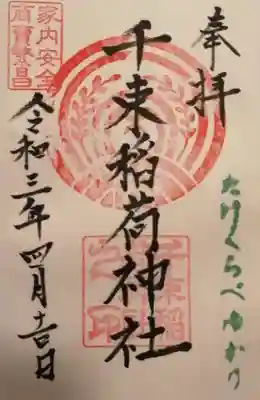 奉拝
たけくらべゆかり
千束稲荷神社
家内安全
商売繁昌
令和三年四月吉日